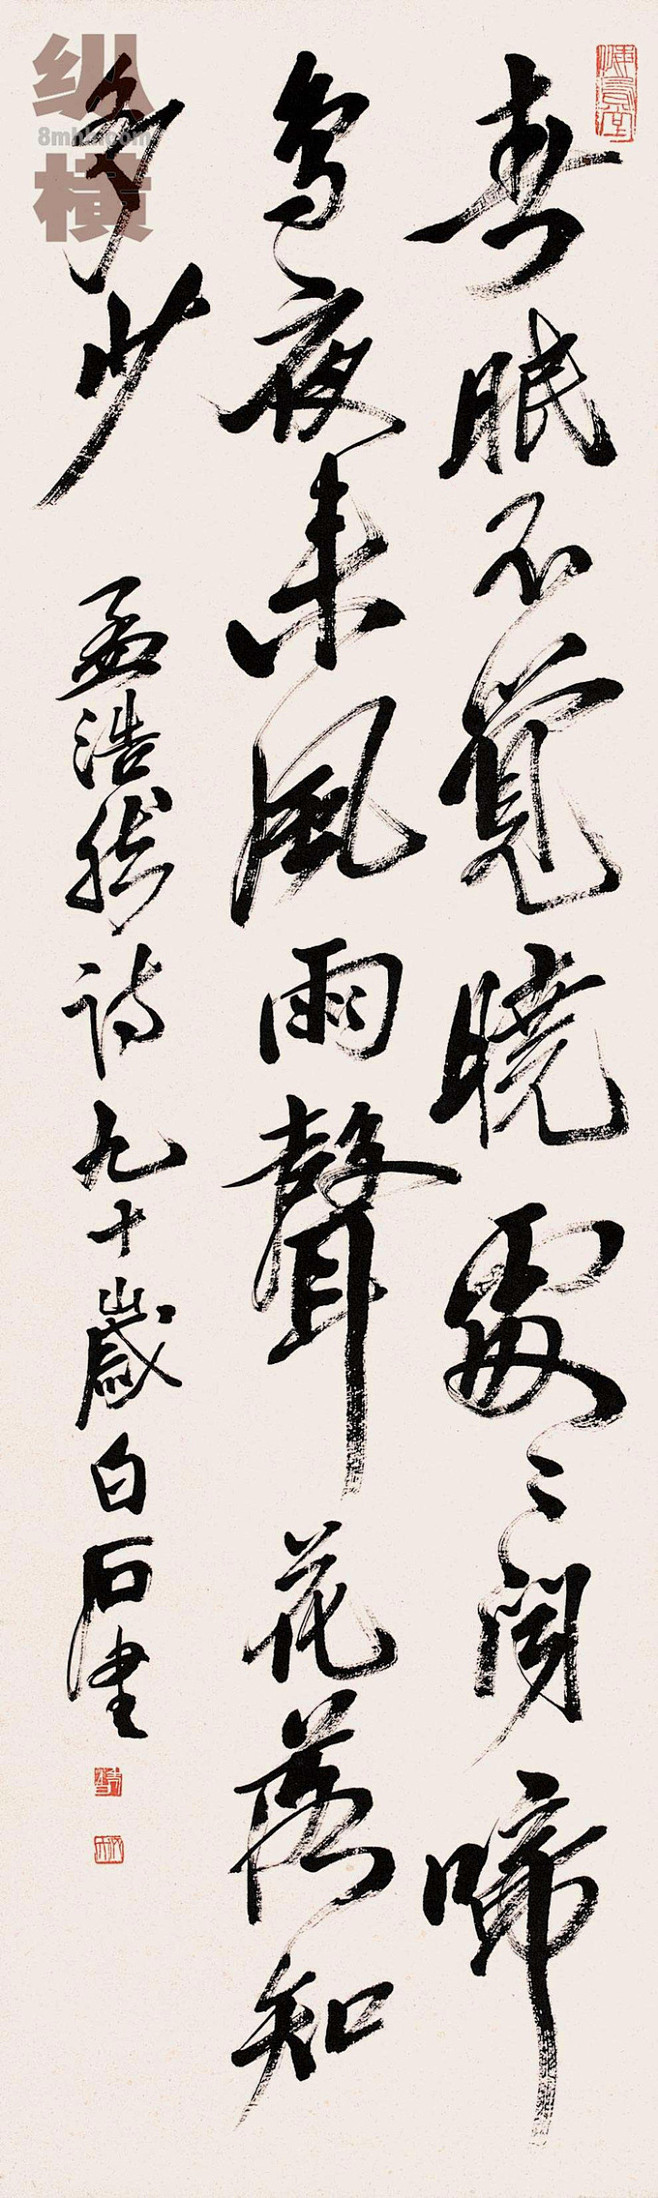 春眠不覺曉處〻聞啼
鳥夜来風雨聲花落知
多少
孟浩然诗九十歲白石書
纵
8mhh.com
横